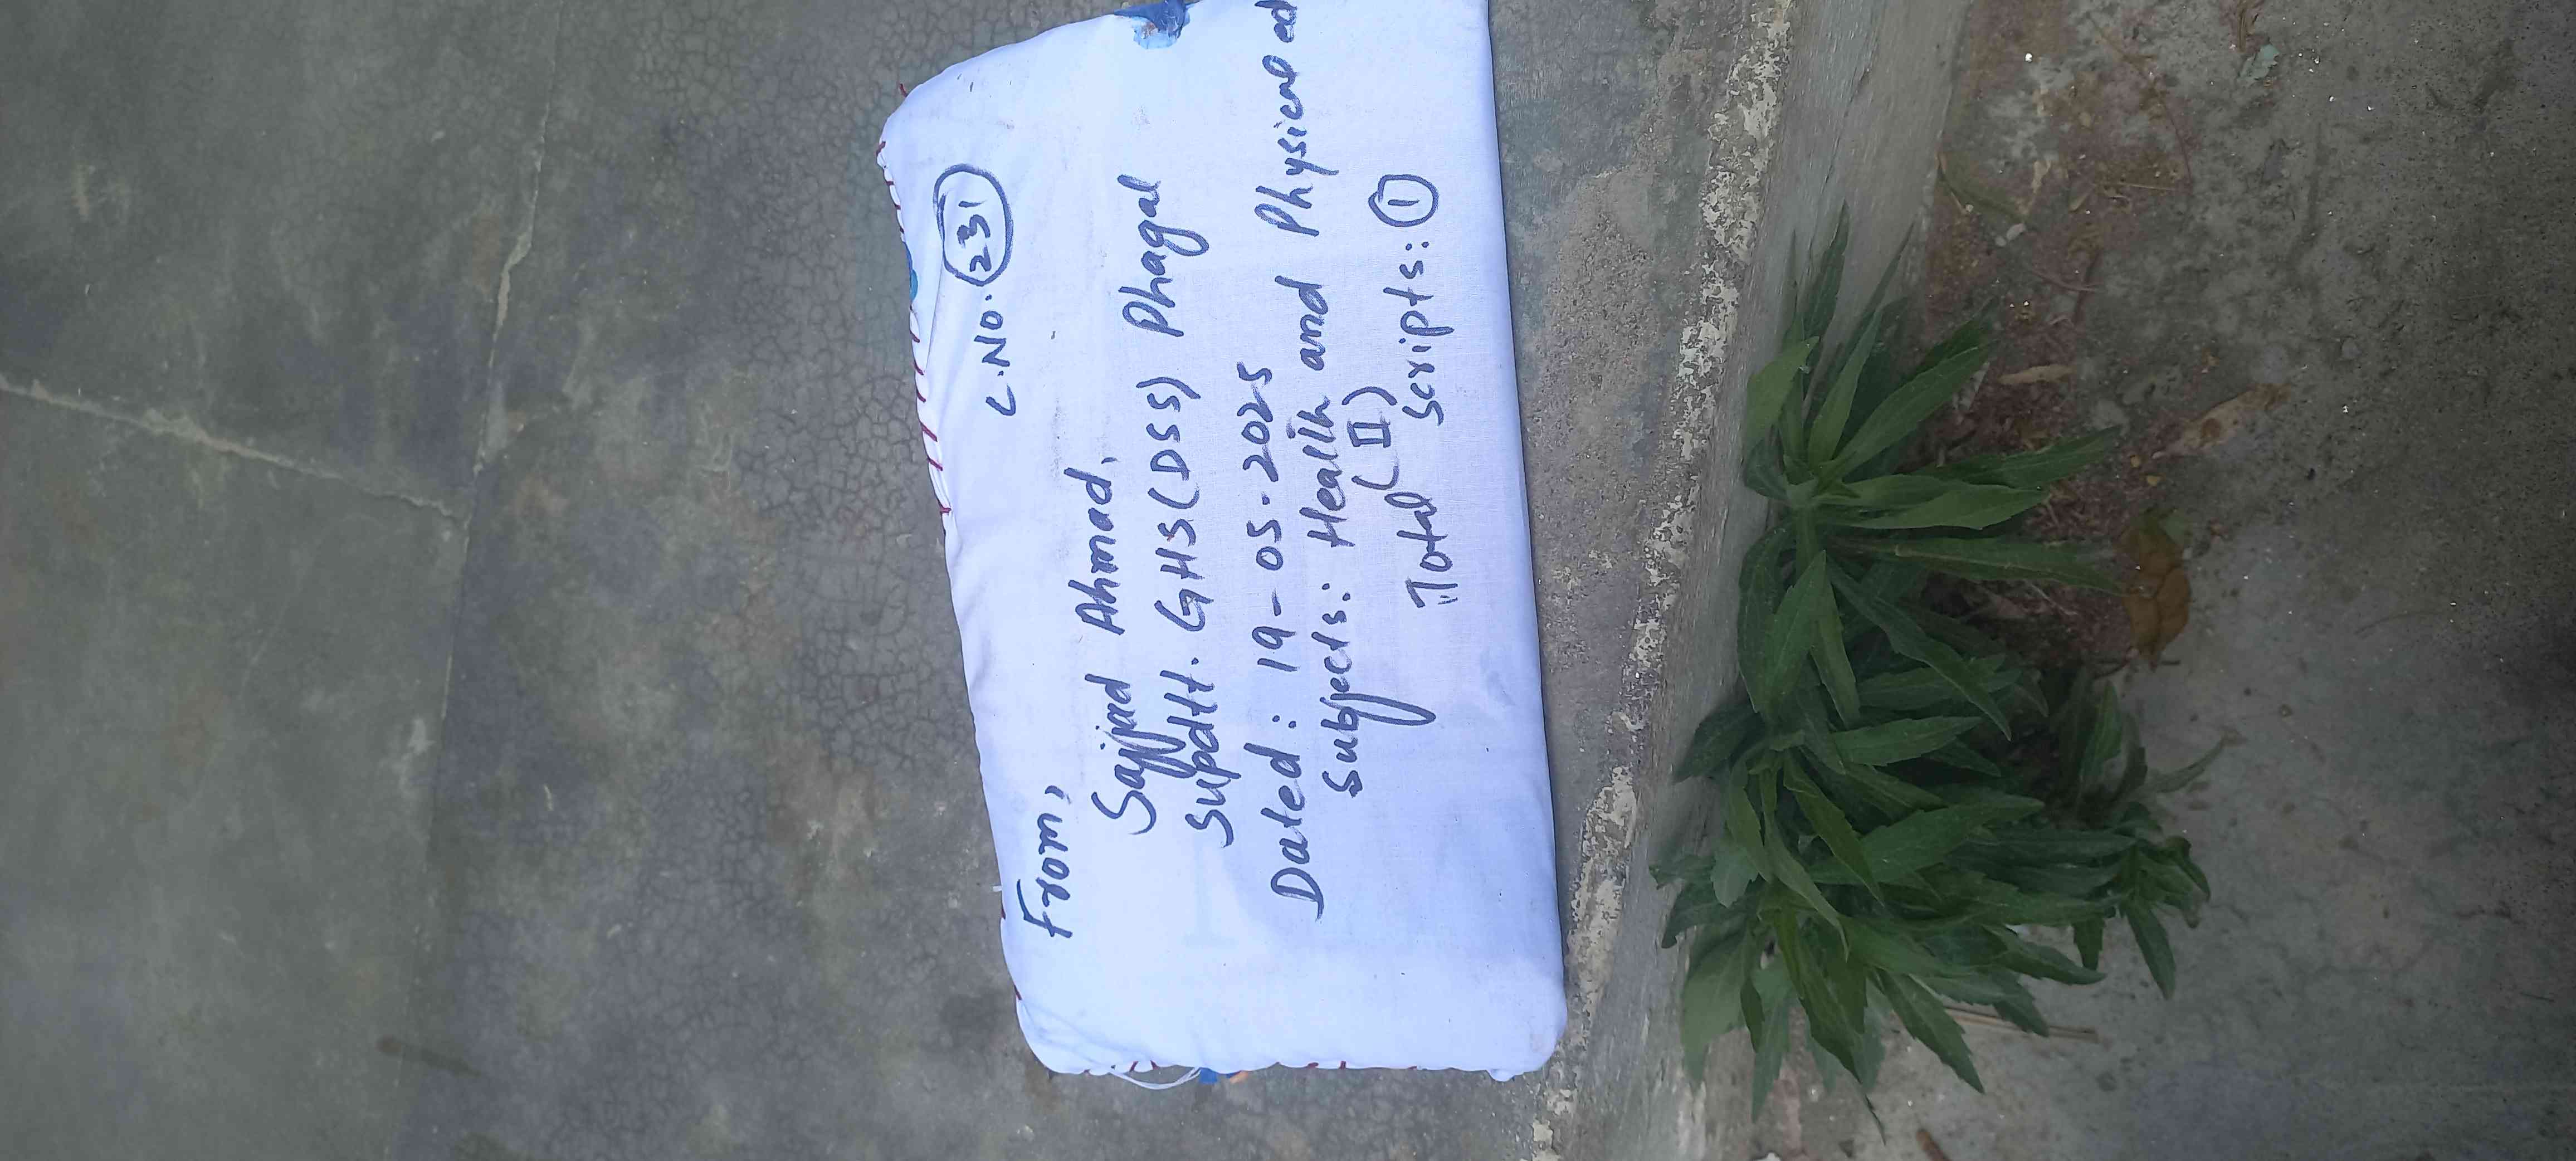 From,
C.No. 231
Sajjad Ahmad,
Supdtt. GHS(DSS) Phagal
Dated: 19-05-2025
Subjects: Health and Physical ed
(II)
Total Scripts: 1